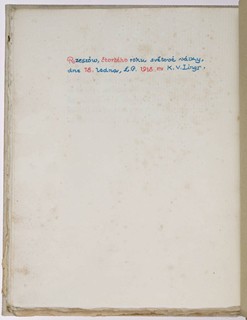 Rzeszów, čtvrtého roku světové války,
dne 18. ledna, L.P. 1918. K.V.